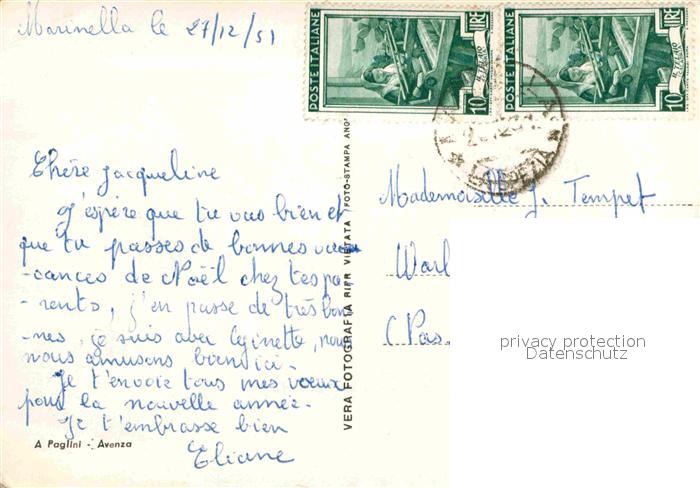 Marinella le 27/12/51
POSTE ITALIANE
10 LIRE
POSTE ITALIANE
10 LIRE
LA SPEZIA
Chère Jacqueline
J'espère que tu vas bien et
que tu passes de bonnes va
-cances de Noël chez tes pa
-rents, j'en passe de très bon
-nes, je suis avec Ginette, nous
nous amusons bien ici.
Je t'envoie tous mes voeux
pour la nouvelle année.
Je t'embrasse bien
Eliane
A Paglini - Avenza
VERA FOTOGRAFIA RIPR VIETATA FOTO-STAMPA ANG
Mademoiselle J. Tempet
Warl
(Pas.
privacy protection
Datenschutz